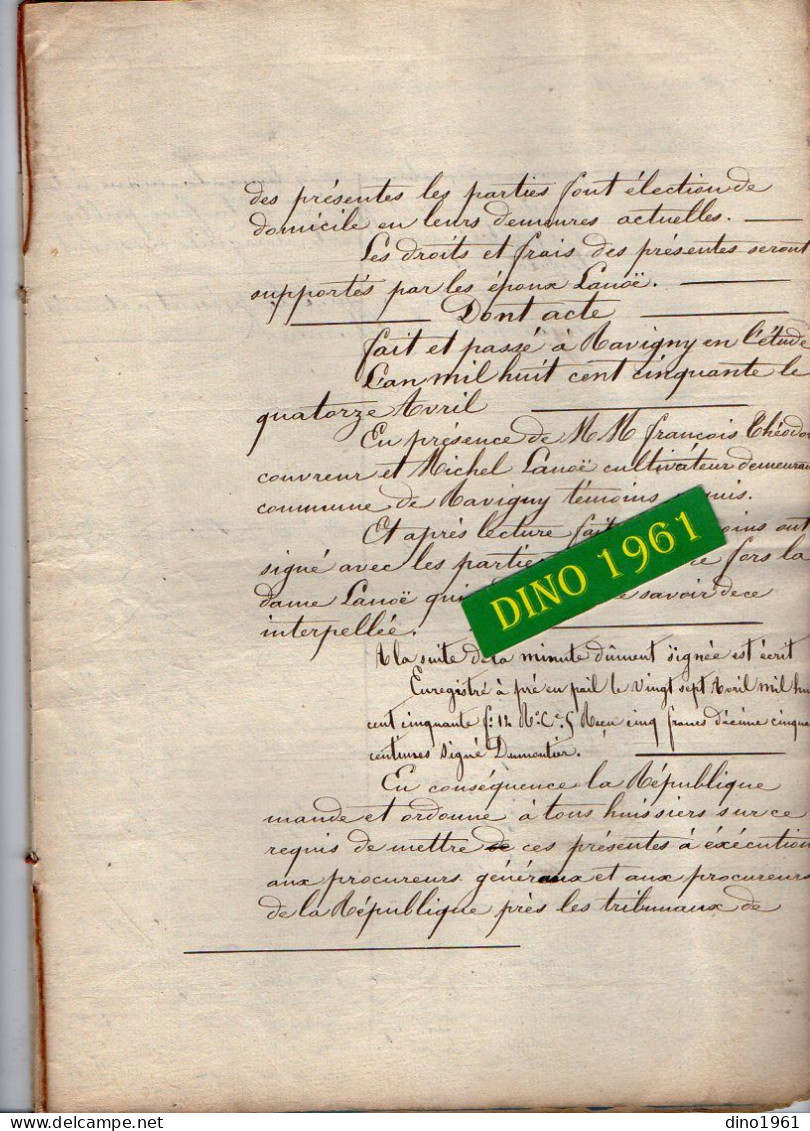 des présentes les parties font élection de
domicile en leurs demeures actuelles.
Les droits et frais des présentes seront
supportés par les époux Lanoë.
Dont acte
fait et passé à Ravigny en l'étude
L'an mil huit cent cinquante le
quatorze Avril
En présence de M M françois Théodor
couvreur et Michel Lanoë cultivateur demeuran
commune de Ravigny témoins
Et après lecture ont
signé avec les fors la
dame Lanoë qui savoir de ce
interpellée.
A la suite de la minute dûment signée est écrit
Enregistré à pré en pail le vingt sept Avril mil hui
cent cinquante f: 12 R: C: 5 Reçu cinq francs décime cinqua
centimes signé Dumontier.
En conséquence la République
mande et ordonne à tous huissiers sur ce
requis de mettre ces présentes à éxécution
aux procureurs généraux et aux procureurs
de la République près les tribunaux de
DINO 1961
delcampe.net
dino1961